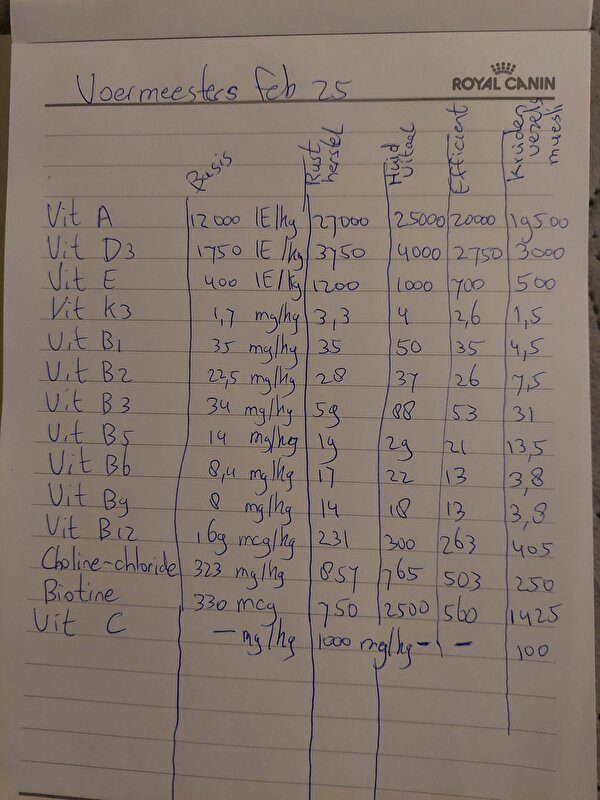 Voermeesters Feb 25
ROYAL CANIN
Basis Rust herstel Huid Vitaal Efficient Kruiden vezels muesli
Vit A 12000 IE/kg 27000 25000 20000 19500
Vit D3 1750 IE/kg 3750 4000 2750 3000
Vit E 400 IE/kg 1200 1000 700 500
Vit K3 1,7 mg/kg 3,3 4 2,6 1,5
Vit B1 35 mg/kg 35 50 35 4,5
Vit B2 22,5 mg/kg 28 37 26 7,5
Vit B3 34 mg/kg 59 88 53 31
Vit B5 14 mg/kg 19 29 21 13,5
Vit B6 8,4 mg/kg 17 22 13 3,8
Vit B9 8 mg/kg 14 18 13 3,8
Vit B12 169 mcg/kg 231 300 263 405
Choline-chloride 323 mg/kg 857 765 503 250
Biotine 330 mcg 750 2500 560 1425
Vit C – mg/kg 1000 mg/kg – – 100